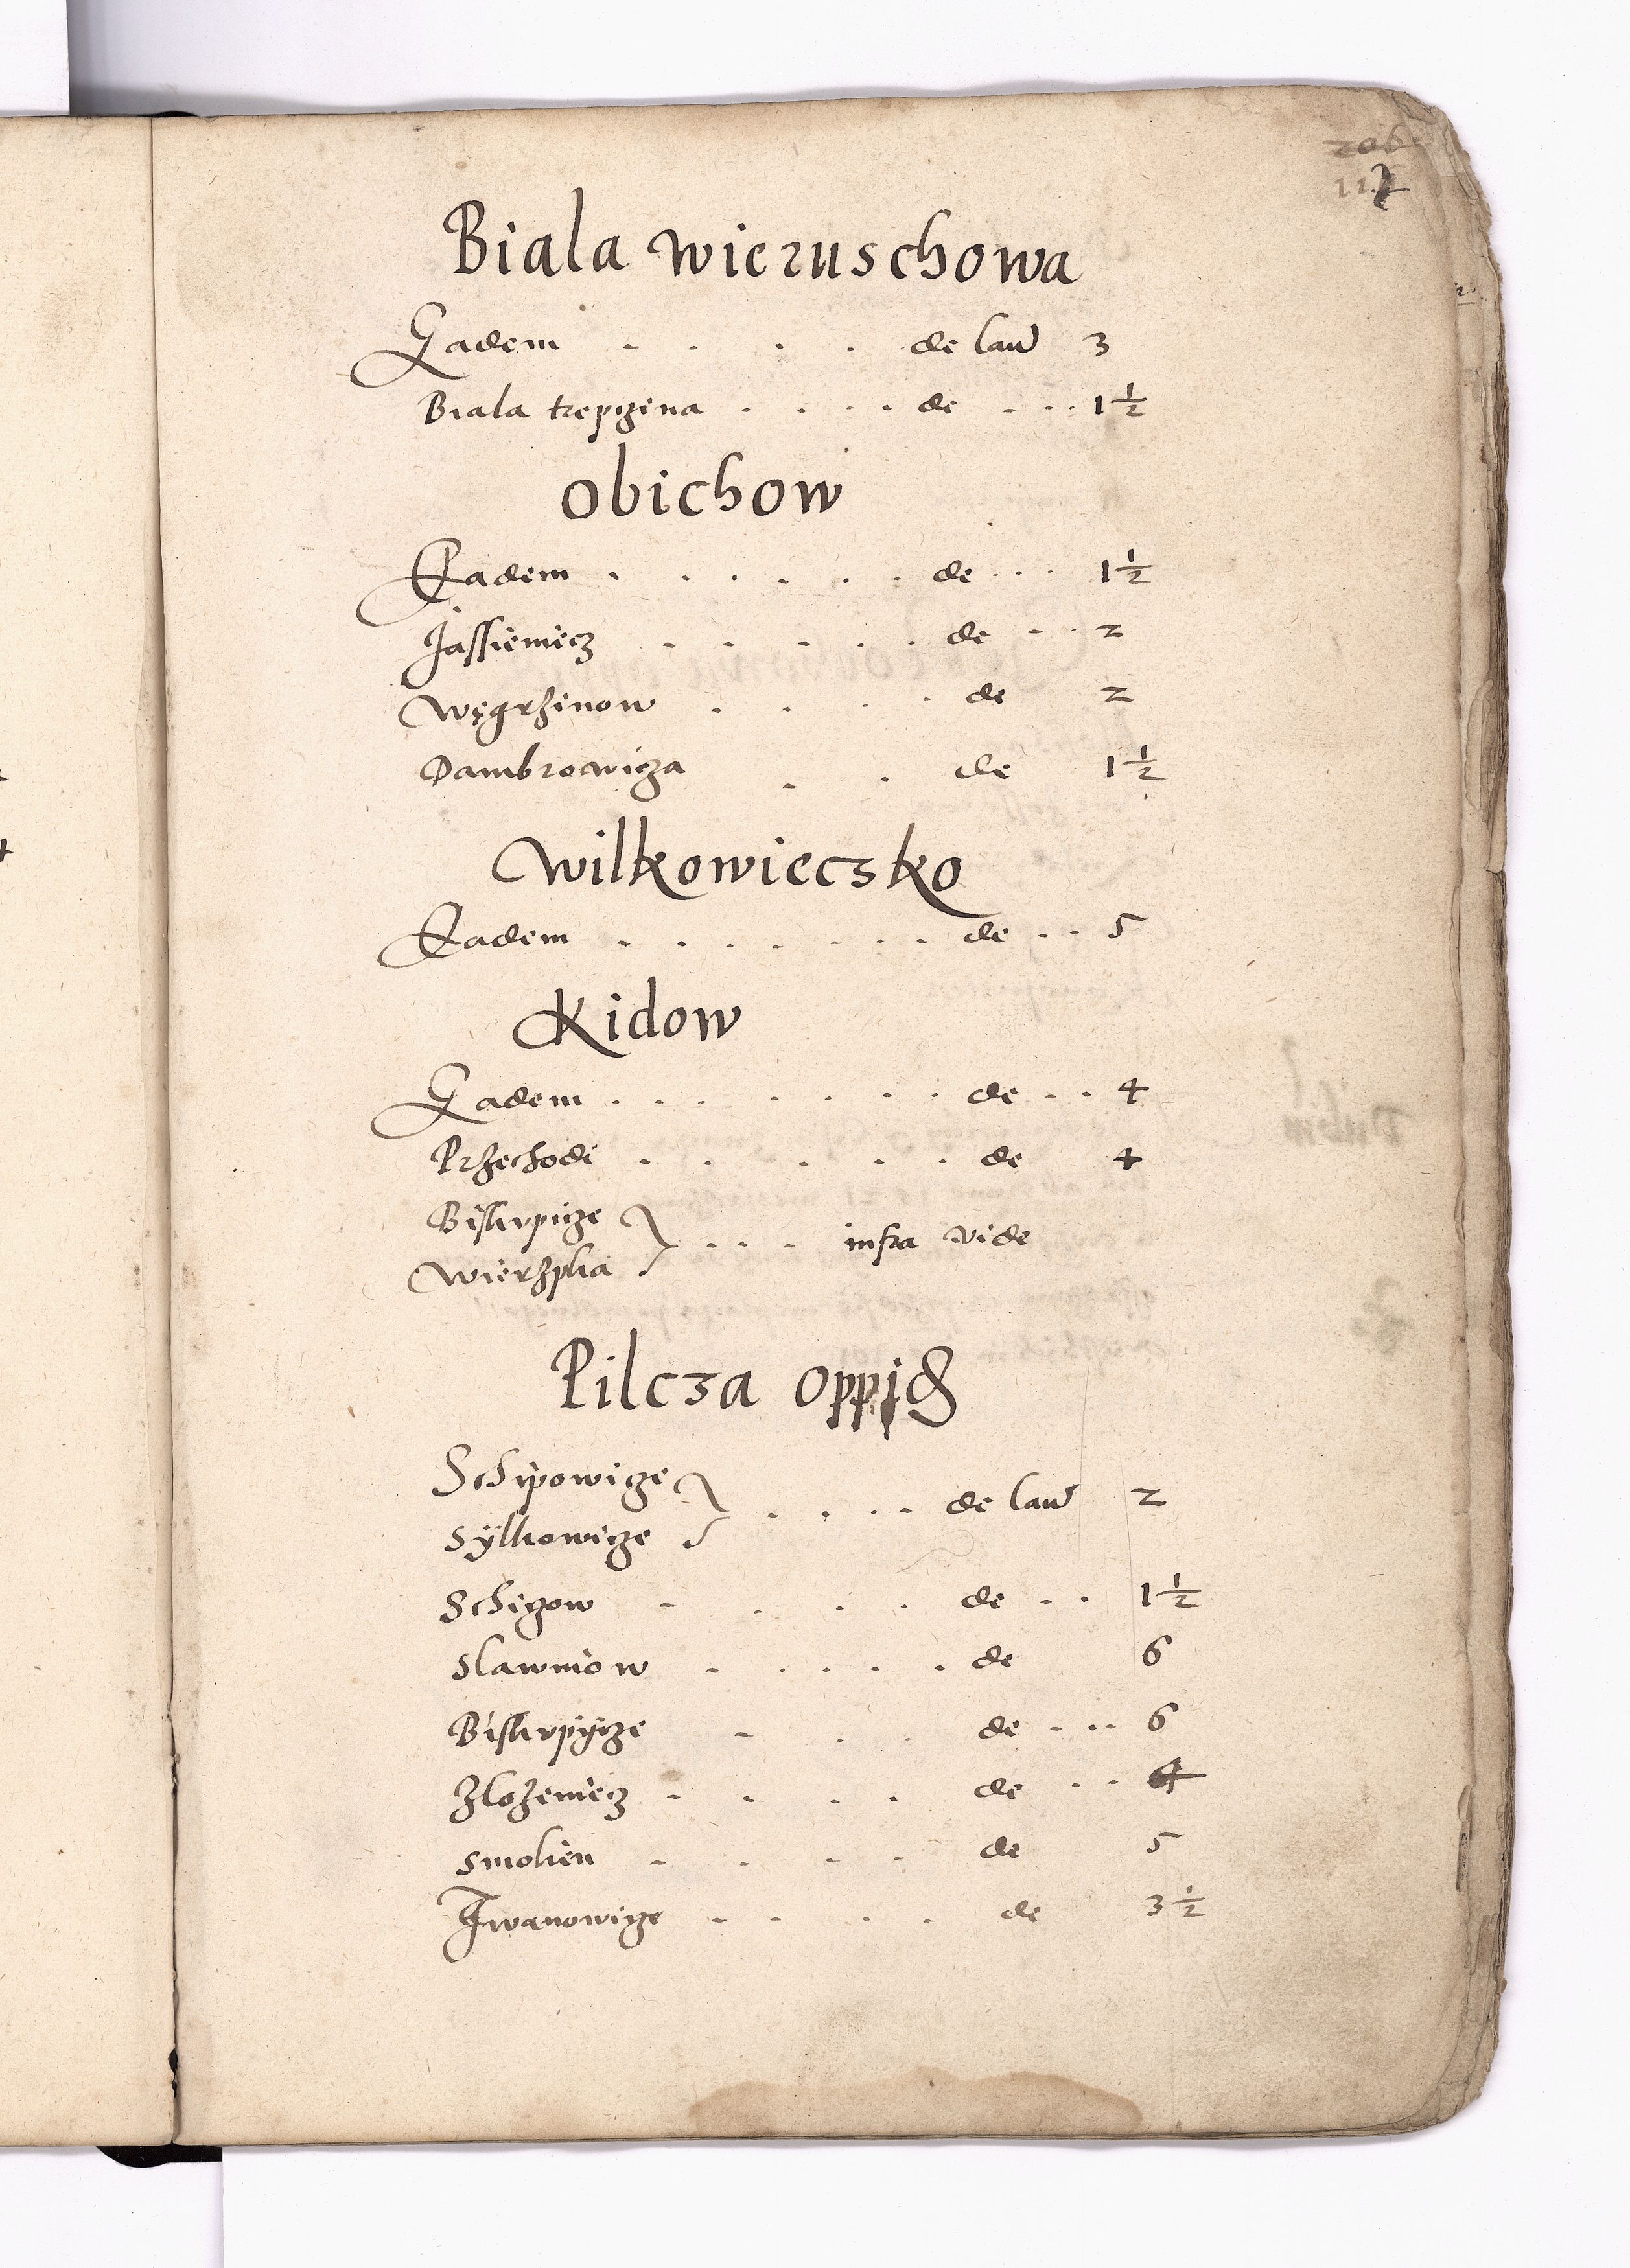 206
117
Biala Wieruschowa
Eadem . . . . de lan 3
Biala trepczina . . . . de . . . 1 1/2
Obichow
Eadem . . . . . . de . . . 1 1/2
Jassieniecz . . . . . de . . 2
Węgrzinow . . . . de 2
Dambrowicza . . de 1 1/2
Wilkowieczko
Eadem . . . . . . . de . . 5
Kidow
Eadem . . . . . . . de . . 4
Przechodi . . . . . de 4
Biskvpicze
Wierzpka } . . . infra vide
Pilcza oppid
Schipowicze
Sÿlkowicze } . . . . de lan 2
Schiczow . . . . de . . 1 1/2
Slawniow . . . . . de 6
Biskvpÿcze . . . de . . . 6
Zlozeniecz . . . . de . . 4
Smolien . . . . de 5
Iwanowicze . . . . de 3 1/2